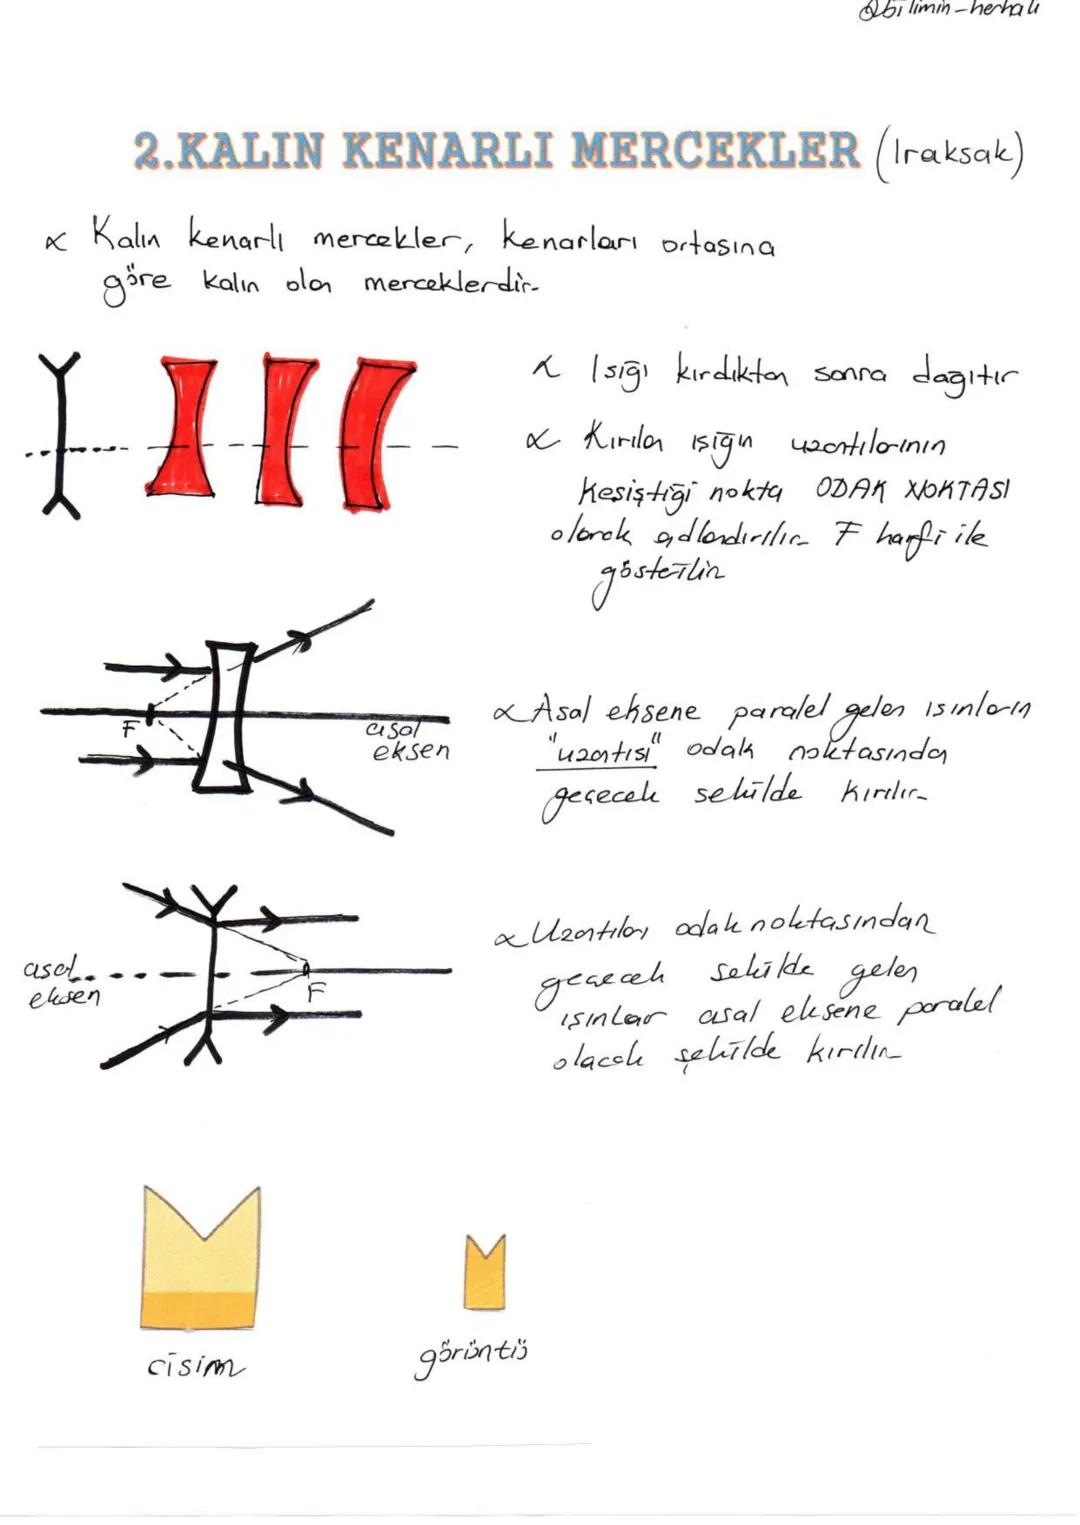 @bilimin-herhali
2.KALIN KENARLI MERCEKLER (Iraksak)
Kalın kenarlı mercekler, kenarları ortasına
göre kalın olan merceklerdir.
Işığı kırdıktan sonra dağıtır
Kırılan ışığın uzantılarının
kesiştiği nokta ODAK NOKTASI
olarak adlandırılır. F harfi ile
gösterilir
F
asal
eksen
Asal eksene paralel gelen ışınların
"uzantısı" odak noktasından
geçecek şekilde kırılır.
asal
eksen
F
Uzantıları odak noktasından
geçecek şekilde gelen
ışınlar asal eksene paralel
olacak şekilde kırılır
cisim
görüntü